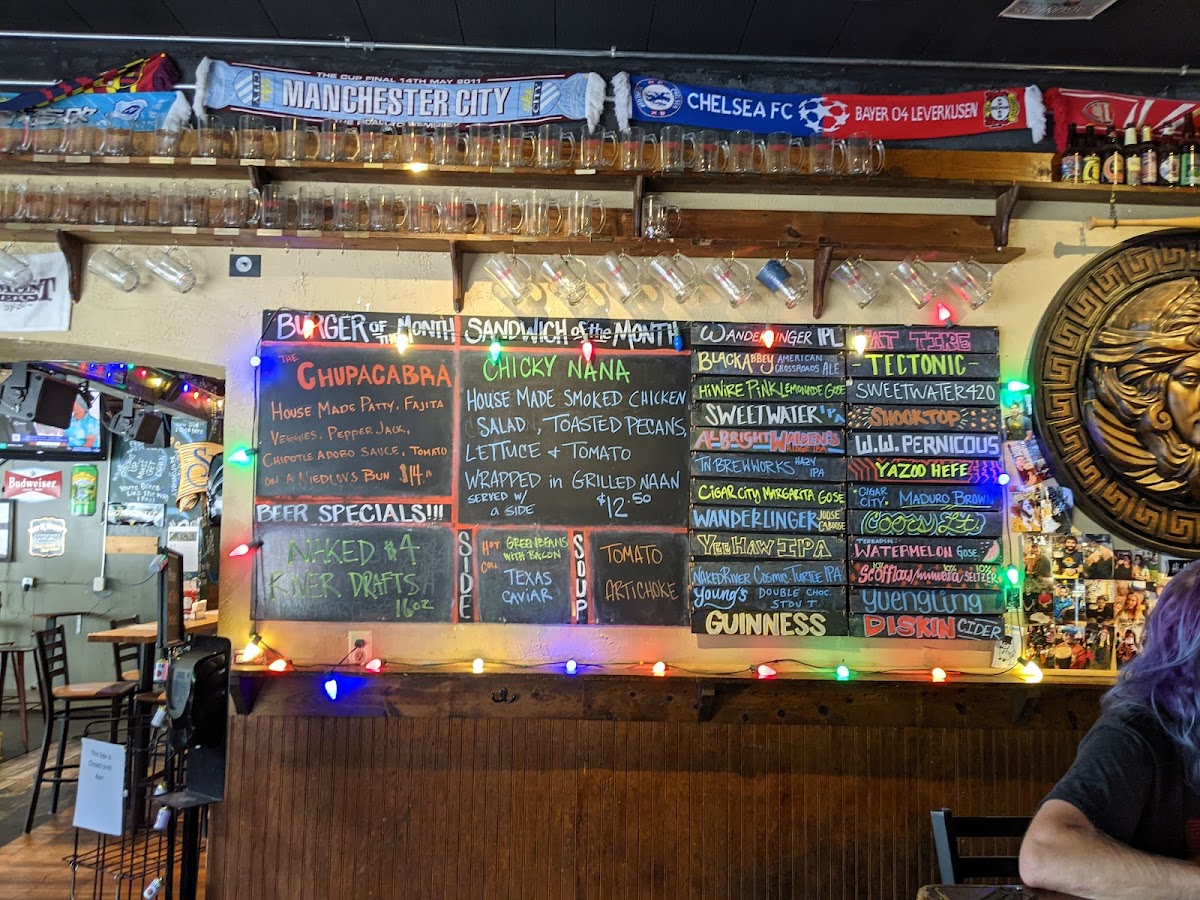 THE CUP FINAL 14TH MAY 2011
MANCHESTER CITY
CHELSEA FC
BAYER 04 LEVERKUSEN
BURGER OF THE MONTH
THE
CHUPACABRA
HOUSE MADE PATTY, FAJITA
VEGGIES, PEPPER JACK,
CHIPOTLE ADOBO SAUCE, TOMATO
ON A NIEDLOVS BUN $14.
BEER SPECIALS!!!
NAKED $4
RIVER DRAFTS
16oz
SANDWICH of the MONTH
CHICKY NANA
HOUSE MADE SMOKED CHICKEN
SALAD, TOASTED PECANS,
LETTUCE + TOMATO
WRAPPED in GRILLED NAAN
SERVED W/
a SIDE
$12.50
SIDE
HOT
GREENBEANS
WITH BACON
TEXAS
CAVIAR
SOUP
TOMATO
ARTICHOKE
WANDERLINGER IPL
BLACK ABBEY AMERICAN
CROSSROADS ALE
HIWIRE PINK LEMONADE GOSE
SWEETWATER IPA
ALBRIGHT WALDEN'S
RIDGE IPA
TN BREWWORKS HAZY
IPA
CIGAR CITY MARGARITA GOSE
WANDERLINGER JOOSE
CABOOSE
YEEHAW IPA
NAKED RIVER COSMIC TURTLE IPA
YOUNG'S DOUBLE CHOC.
STOUT
GUINNESS
FAT TIRE
-TECTONIC-
SWEETWATER 420
SHOCKTOP
W.W. PERNICOUS
YAZOO HEFE
CIGAR
CITY, MADURO BROWN
COORS LT.
TERRAPIN
WATERMELON GOSE
10% 10%
SCOFFLAW MIMOSA SELTZER
YUENGLING
DISKIN CIDER
Budweiser
This Side is
Closed Until